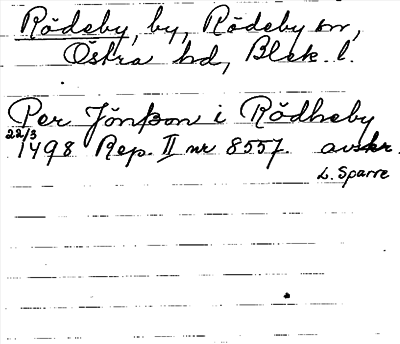 Rödeby, by, Rödeby sn,
Östra hd, Blek. l.
Per Jönsson i Rödheby
22/3
1498 Rep. II nr 8557. avskr.
L. Sparre